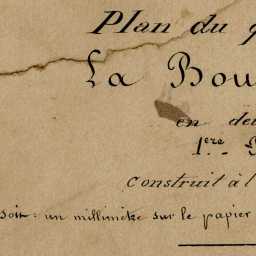 Plan du
La Bou
en de
1ere
construit à l
soit: un millimètre sur le papier